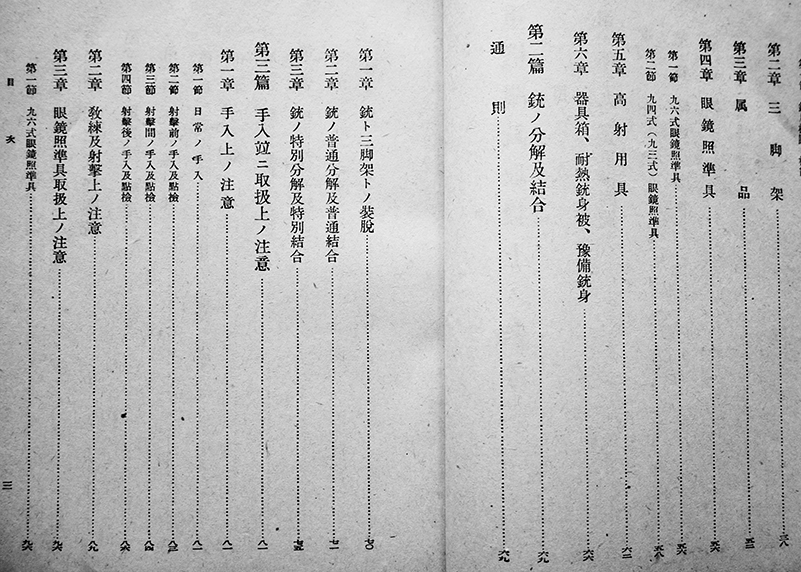 第二章 三脚架……三八
第三章 属品……五三
第四章 眼鏡照準具……五六
第一節 九六式眼鏡照準具……五六
第二節 九四式(九三式)眼鏡照準具……五八
第五章 高射用具……六二
第六章 器具箱、耐熱銃身被、豫備銃身……六六
第二篇 銃ノ分解及結合……六九
通則……六九
第一章 銃ト三脚架トノ装脫……七〇
第二章 銃ノ普通分解及普通結合……七一
第三章 銃ノ特別分解及特別結合……七五
第三篇 手入竝ニ取扱上ノ注意……八一
第一章 手入上ノ注意……八一
第一節 日常ノ手入……八一
第二節 射擊前ノ手入及點檢……八三
第三節 射擊間ノ手入及點檢……八四
第四節 射擊後ノ手入及點檢……八六
第二章 敎練及射擊上ノ注意……八九
第三章 眼鏡照準具取扱上ノ注意……九六
第一節 九六式眼鏡照準具……九六
目次
三